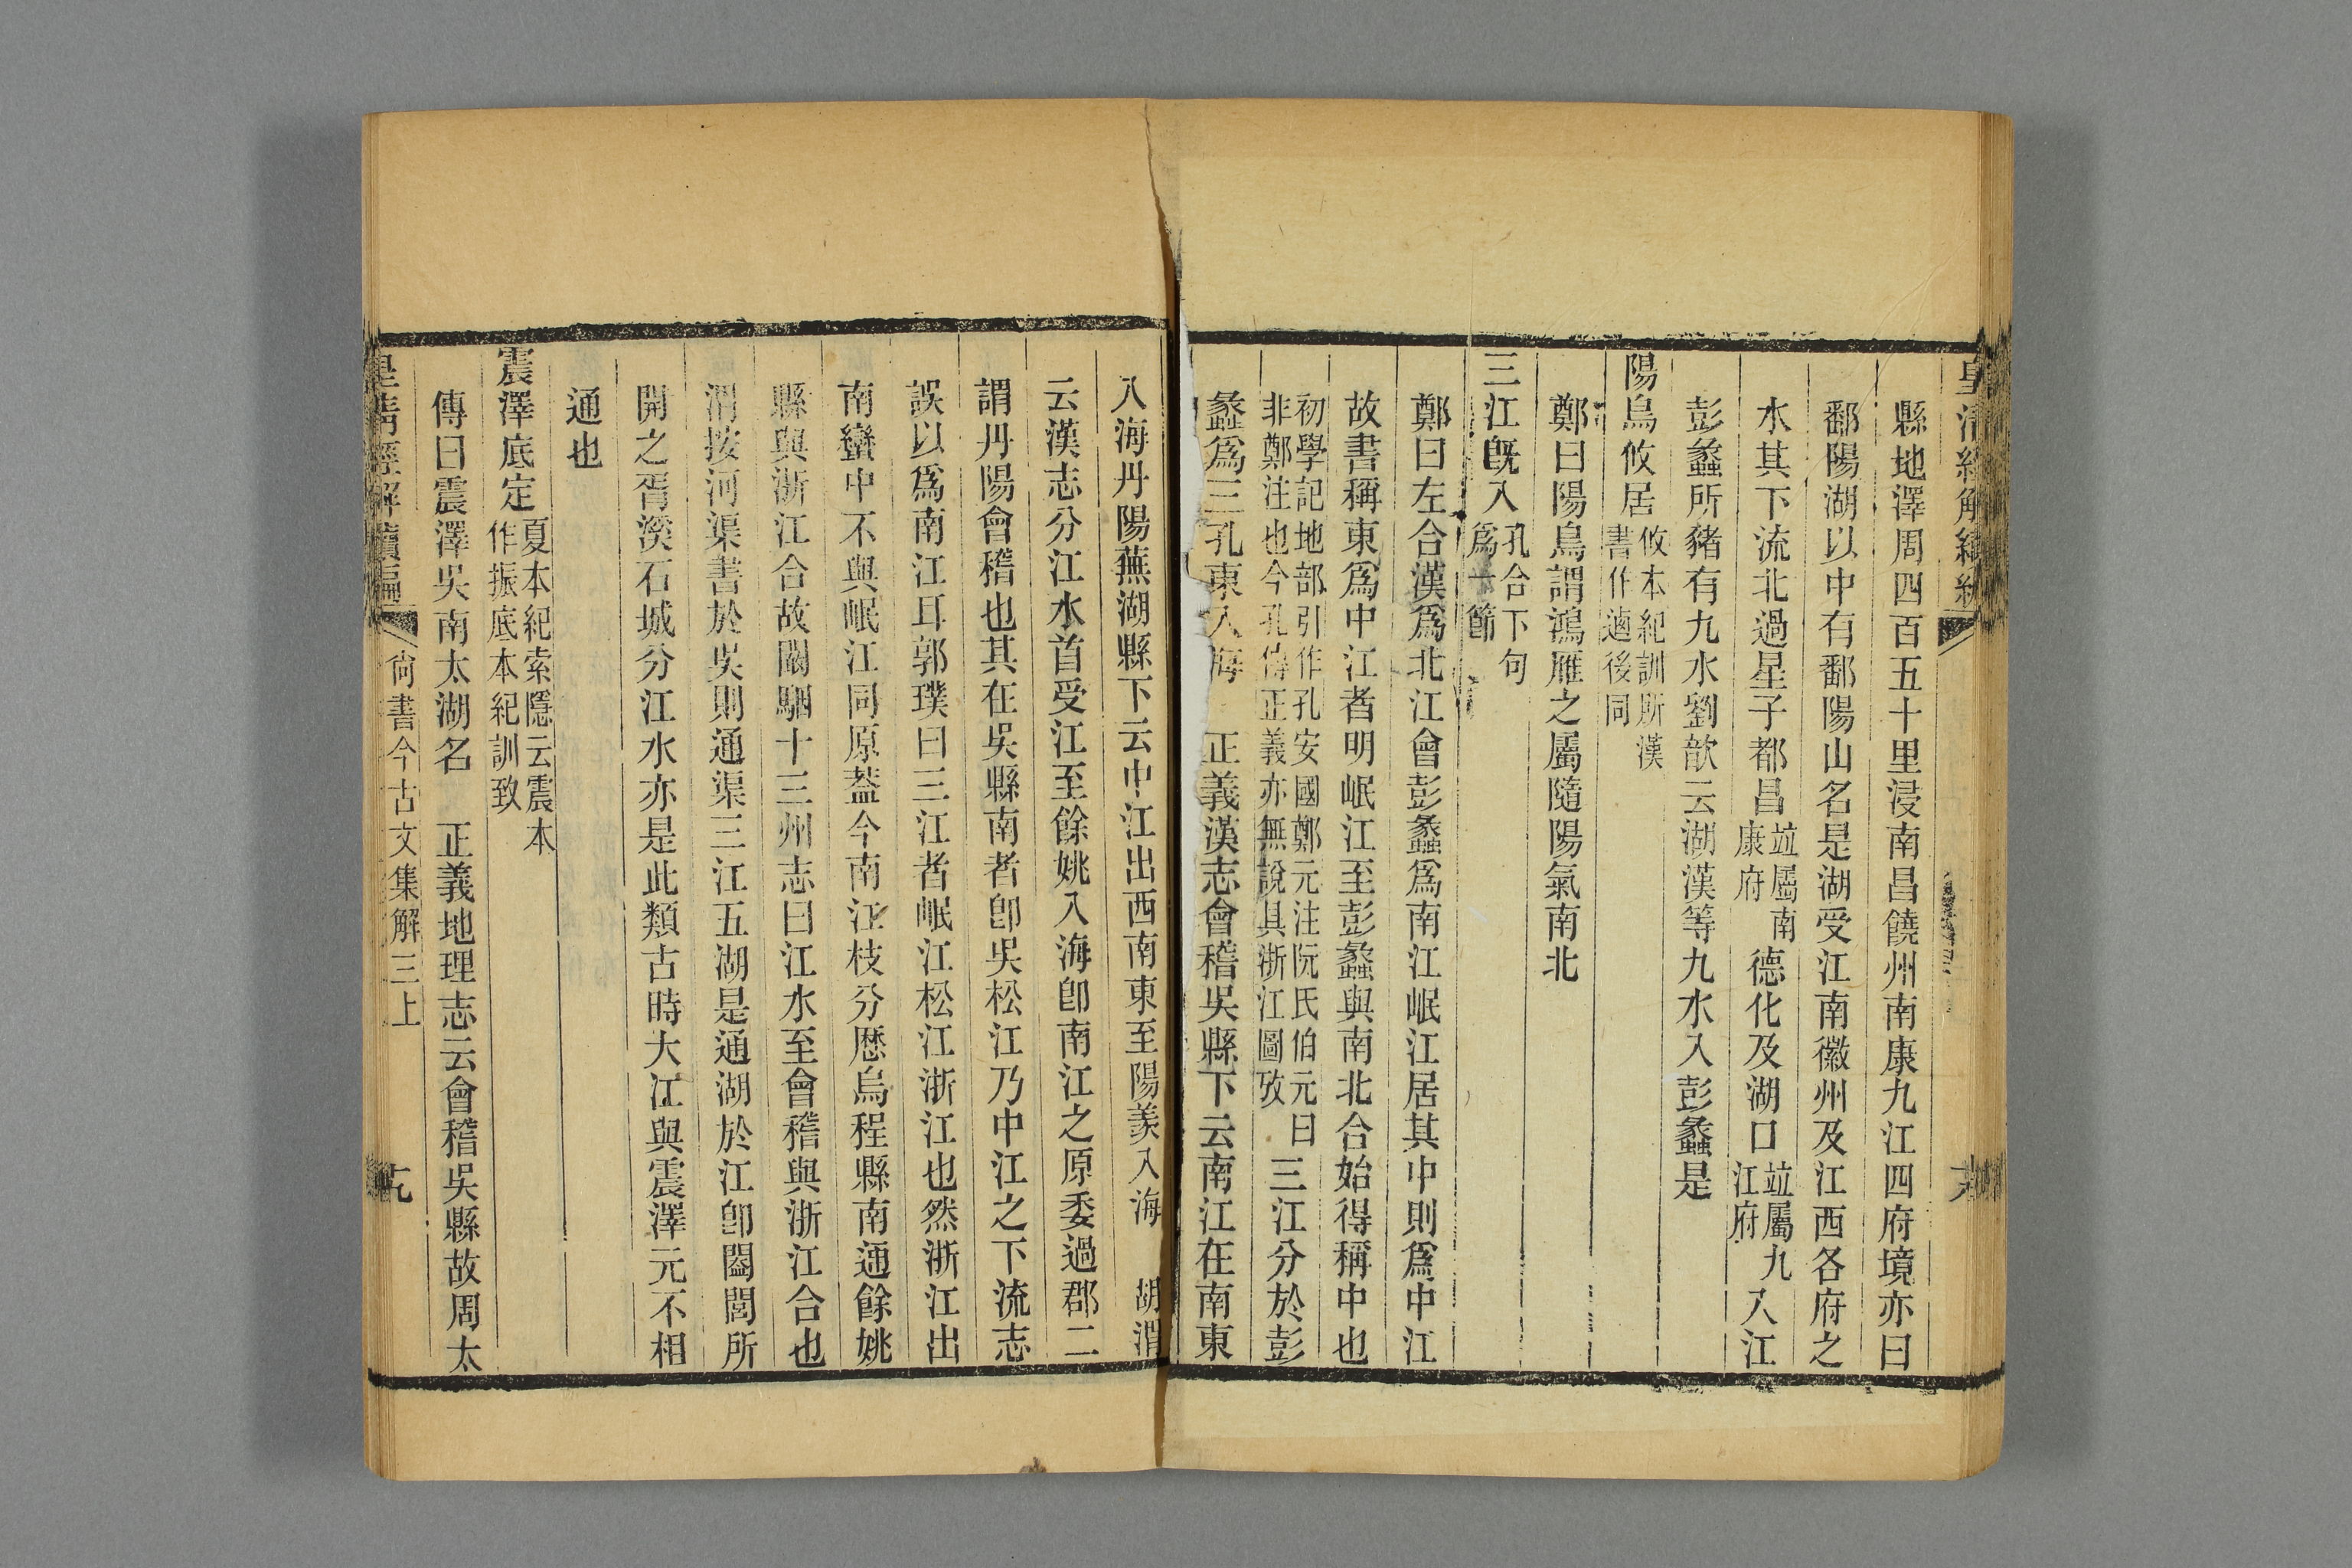 皇清經解續編
縣地澤周四百五十里浸南昌饒州南康九江四府境亦曰
鄱陽湖以中有鄱陽山名是湖受江南徽州及江西各府之
水其下流北過星子都昌竝屬南康府德化及湖口竝屬九江府入江
彭蠡所豬有九水劉歆云湖漢等九水入彭蠡是
陽鳥攸居攸本紀訓所漢書作逌後同
鄭曰陽鳥謂鴻雁之屬隨陽氣南北
三江旣入孔合下句爲一節
鄭曰左合漢爲北江會彭蠡爲南江岷江居其中則爲中江
故書稱東爲中江者明岷江至彭蠡與南北合始得稱中也
初學記地部引作孔安國鄭元注阮氏伯元曰非鄭注也今孔傳正義亦無說具浙江圖攷三江分於彭
蠡爲三孔東入海 正義漢志會稽吳縣下云南江在南東
入海丹陽蕪湖縣下云中江出西南東至陽羨入海 胡渭
云漢志分江水首受江至餘姚入海卽南江之原委過郡二
謂丹陽會稽也其在吳縣南者卽吳松江乃中江之下流志
誤以爲南江耳郭璞曰三江者岷江松江浙江也然浙江出
南蠻中不與岷江同原葢今南江枝分歷烏程縣南通餘姚
縣與浙江合故闞駰十三州志曰江水至會稽與浙江合也
渭按河渠書於吳則通渠三江五湖是通湖於江卽闔閭所
開之胥溪石城分江水亦是此類古時大江與震澤元不相
通也
震澤底定夏本紀索隱云震本作振底本紀訓致
傳曰震澤吳南太湖名 正義地理志云會稽吳縣故周太
皇清經解續編 尙書今古文集解三上